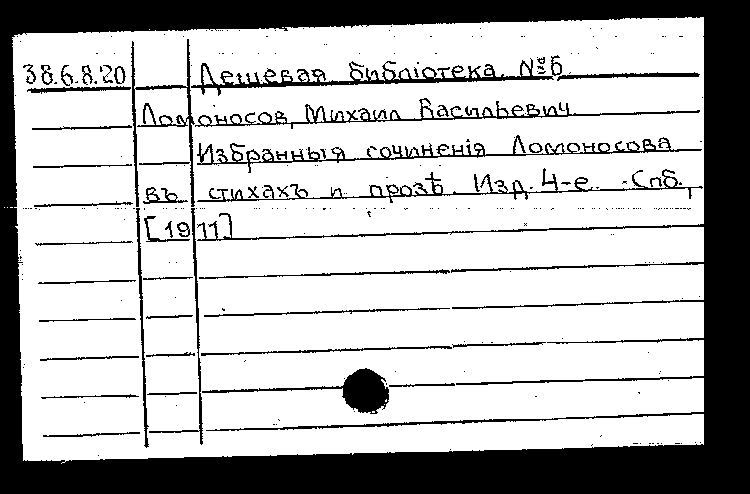 38.6.8.20 Дешевая библіотека. № 5
Ломоносов, Михаил Васильевич
Избранныя сочиненія Ломоносова
въ стихахъ и прозѣ. Изд. 4-е. -Спб.,
[1911]